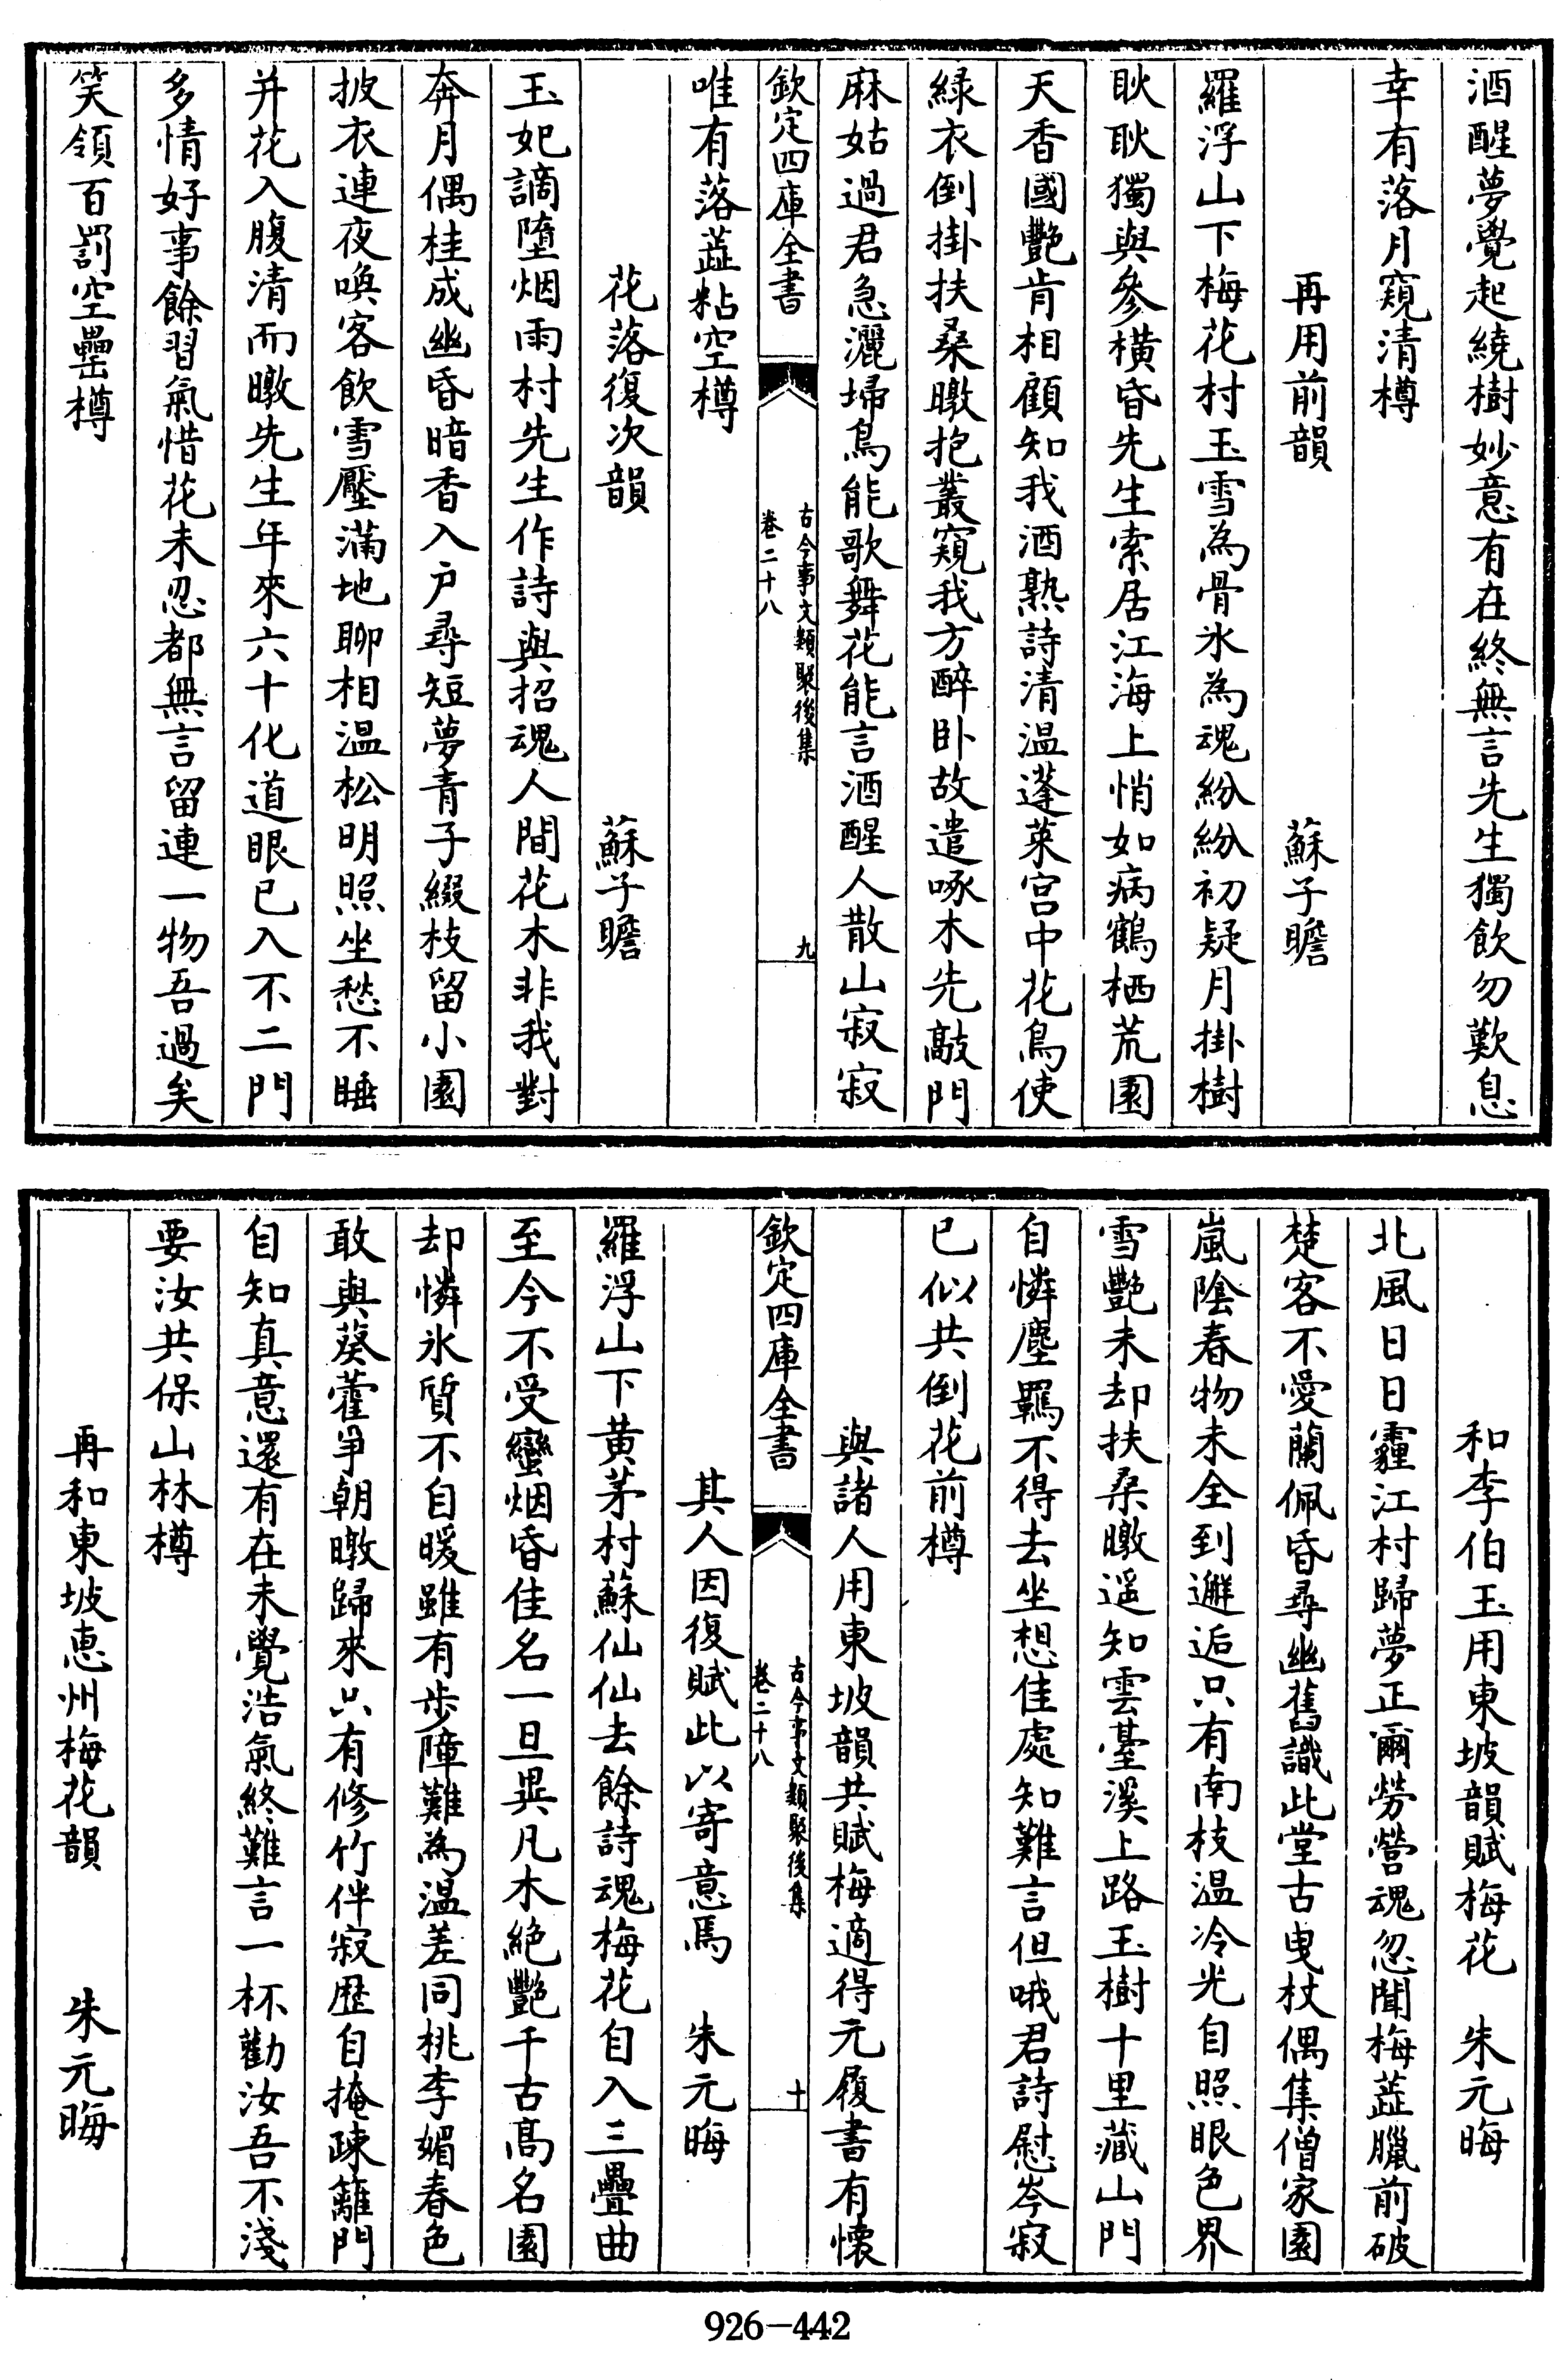 酒醒夢覺起繞樹妙意有在終無言先生獨飲勿歎息
幸有落月窺清樽
再用前韻 蘇子瞻
羅浮山下梅花村玉雪為骨氷為魂紛紛初疑月掛樹
耿耿獨與參橫昏先生索居江海上悄如病鶴栖荒園
天香國艷肯相顧知我酒熟詩清温蓬萊宫中花鳥使
緑衣倒掛扶桑暾抱叢窺我方醉卧故遣啄木先敲門
麻姑過君急灑埽鳥能歌舞花能言酒醒人散山寂寂
欽定四庫全書
古今事文類聚後集
卷二十八
九
唯有落蕋粘空樽
花落復次韻 蘇子瞻
玉妃謫墮烟雨村先生作詩與招魂人間花木非我對
奔月偶桂成幽昏暗香入户尋短夢青子綴枝留小園
披衣連夜喚客飲雪壓滿地聊相温松明照坐愁不睡
并花入腹清而暾先生年來六十化道眼已入不二門
多情好事餘習氣惜花未忍都無言留連一物吾過矣
笑領百罰空罍樽
和李伯玉用東坡韻賦梅花 朱元晦
北風日日霾江村歸夢正爾勞營魂忽聞梅蕋臘前破
楚客不愛蘭佩昏尋幽舊識此堂古曳杖偶集僧家園
嵐陰春物未全到邂逅只有南枝温冷光自照眼色界
雪艷未却扶桑暾遥知雲臺溪上路玉樹十里藏山門
自憐塵羈不得去坐想佳處知難言但哦君詩慰岑寂
已似共倒花前樽
與諸人用東坡韻共賦梅適得元履書有懷
欽定四庫全書
古今事文類聚後集
卷二十八
十
其人因復賦此以寄意焉 朱元晦
羅浮山下黄茅村蘇仙仙去餘詩魂梅花自入三疊曲
至今不受蠻烟昏佳名一旦異凡木絶艷千古髙名園
却憐氷質不自暖雖有步障難為温羞同桃李媚春色
敢與葵藿爭朝暾歸來只有修竹伴寂歴自掩疎籬門
自知真意還有在未覺浩氣終難言一杯勸汝吾不淺
要汝共保山林樽
再和東坡惠州梅花韻 朱元晦
926-442